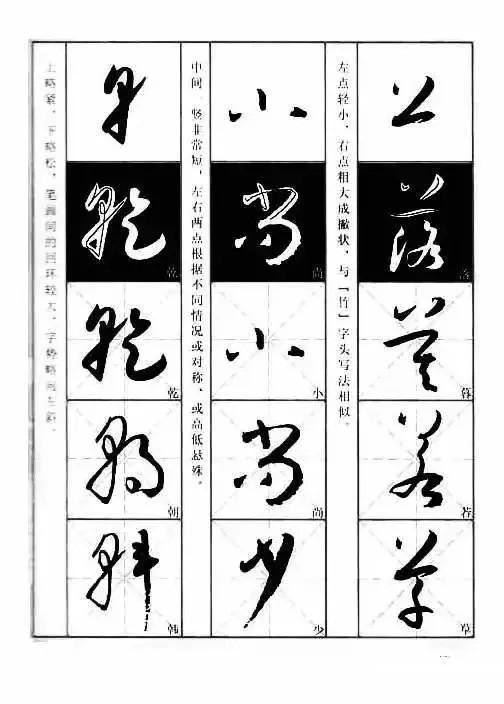 落
暮
若
草
左点轻小，右点粗大成撇状，与「竹」字头写法相似。
小
尚
小
尚
少
中间一竖非常短，左右两点根据不同情况或对称，或高低悬殊。
乾
乾
朝
韩
上略紧，下略松，笔画间的回环较大，字势略向左斜。